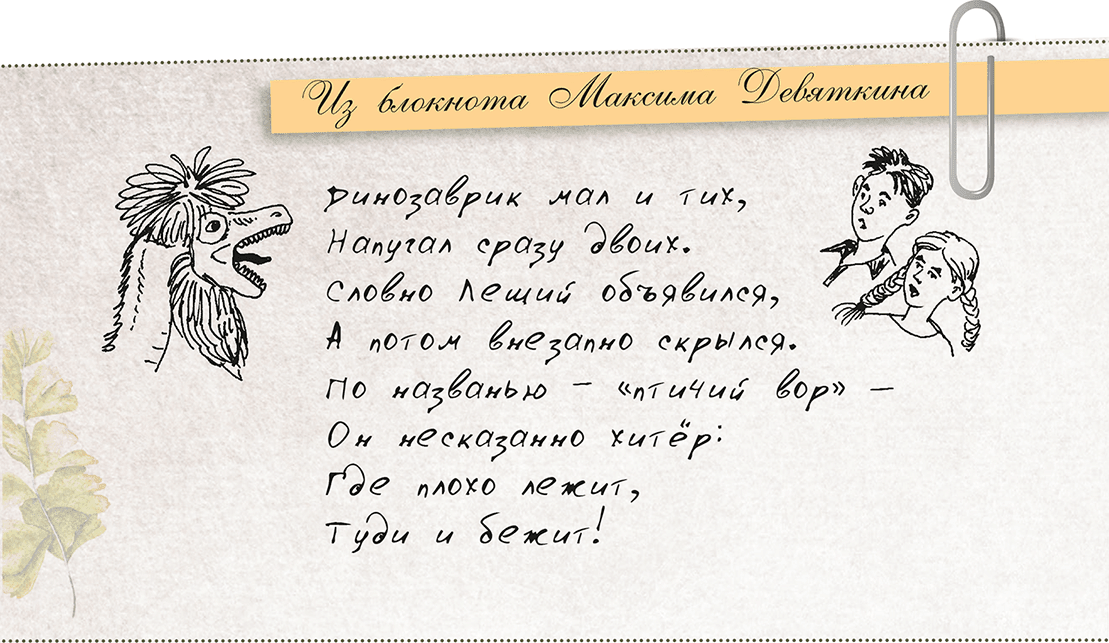 Из блокнота Максима Девяткина
Динозаврик мал и тих,
Напугал сразу двоих.
Словно Леший объявился,
А потом внезапно скрылся.
По названью – «птичий вор» –
Он несказанно хитёр:
Где плохо лежит,
Туди и бежит!